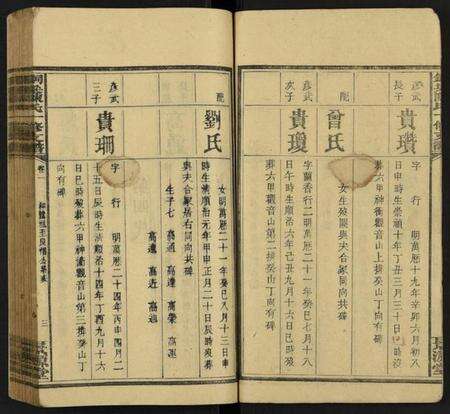 彥武
長子
貴瓚
明萬曆十九年辛卯六月初八
日申時生崇禎十年丁丑三月三十日戌時沒
葬六甲神衝觀音山上排癸山丁向有碑
配
曾氏
女生歿闕與夫合冢同向共碑
彥武
次子
貴瓊
字蘭香行二明萬曆二十一年癸巳七月十八
日午時生順治六年己丑九月十
葬六甲觀音山第二排癸山丁向有碑
配
劉氏
女明萬曆二十一年癸巳八月十三日申
時生清順治元年甲申正月二十日辰時歿葬
與夫合冢居右同向共碑
生子七 高通 高達 高榮 高運
高遠 高近 高迪
彥武
三子
貴珊
字 行 明萬曆二十四年丙申四月二
十五日辰時生清順治十四年丁酉九月十六
日巳時歿葬六甲神衝觀音山第三排癸山丁
向有碑